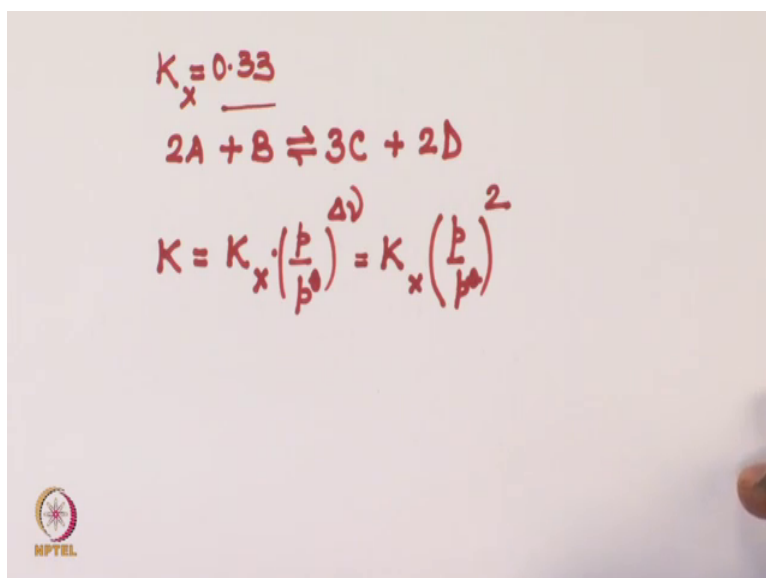 Kₓ = 0.33
2A + B ⇌ 3C + 2D
K = Kₓ · (p/p°)^Δν = Kₓ (p/p°)^2
NPTEL